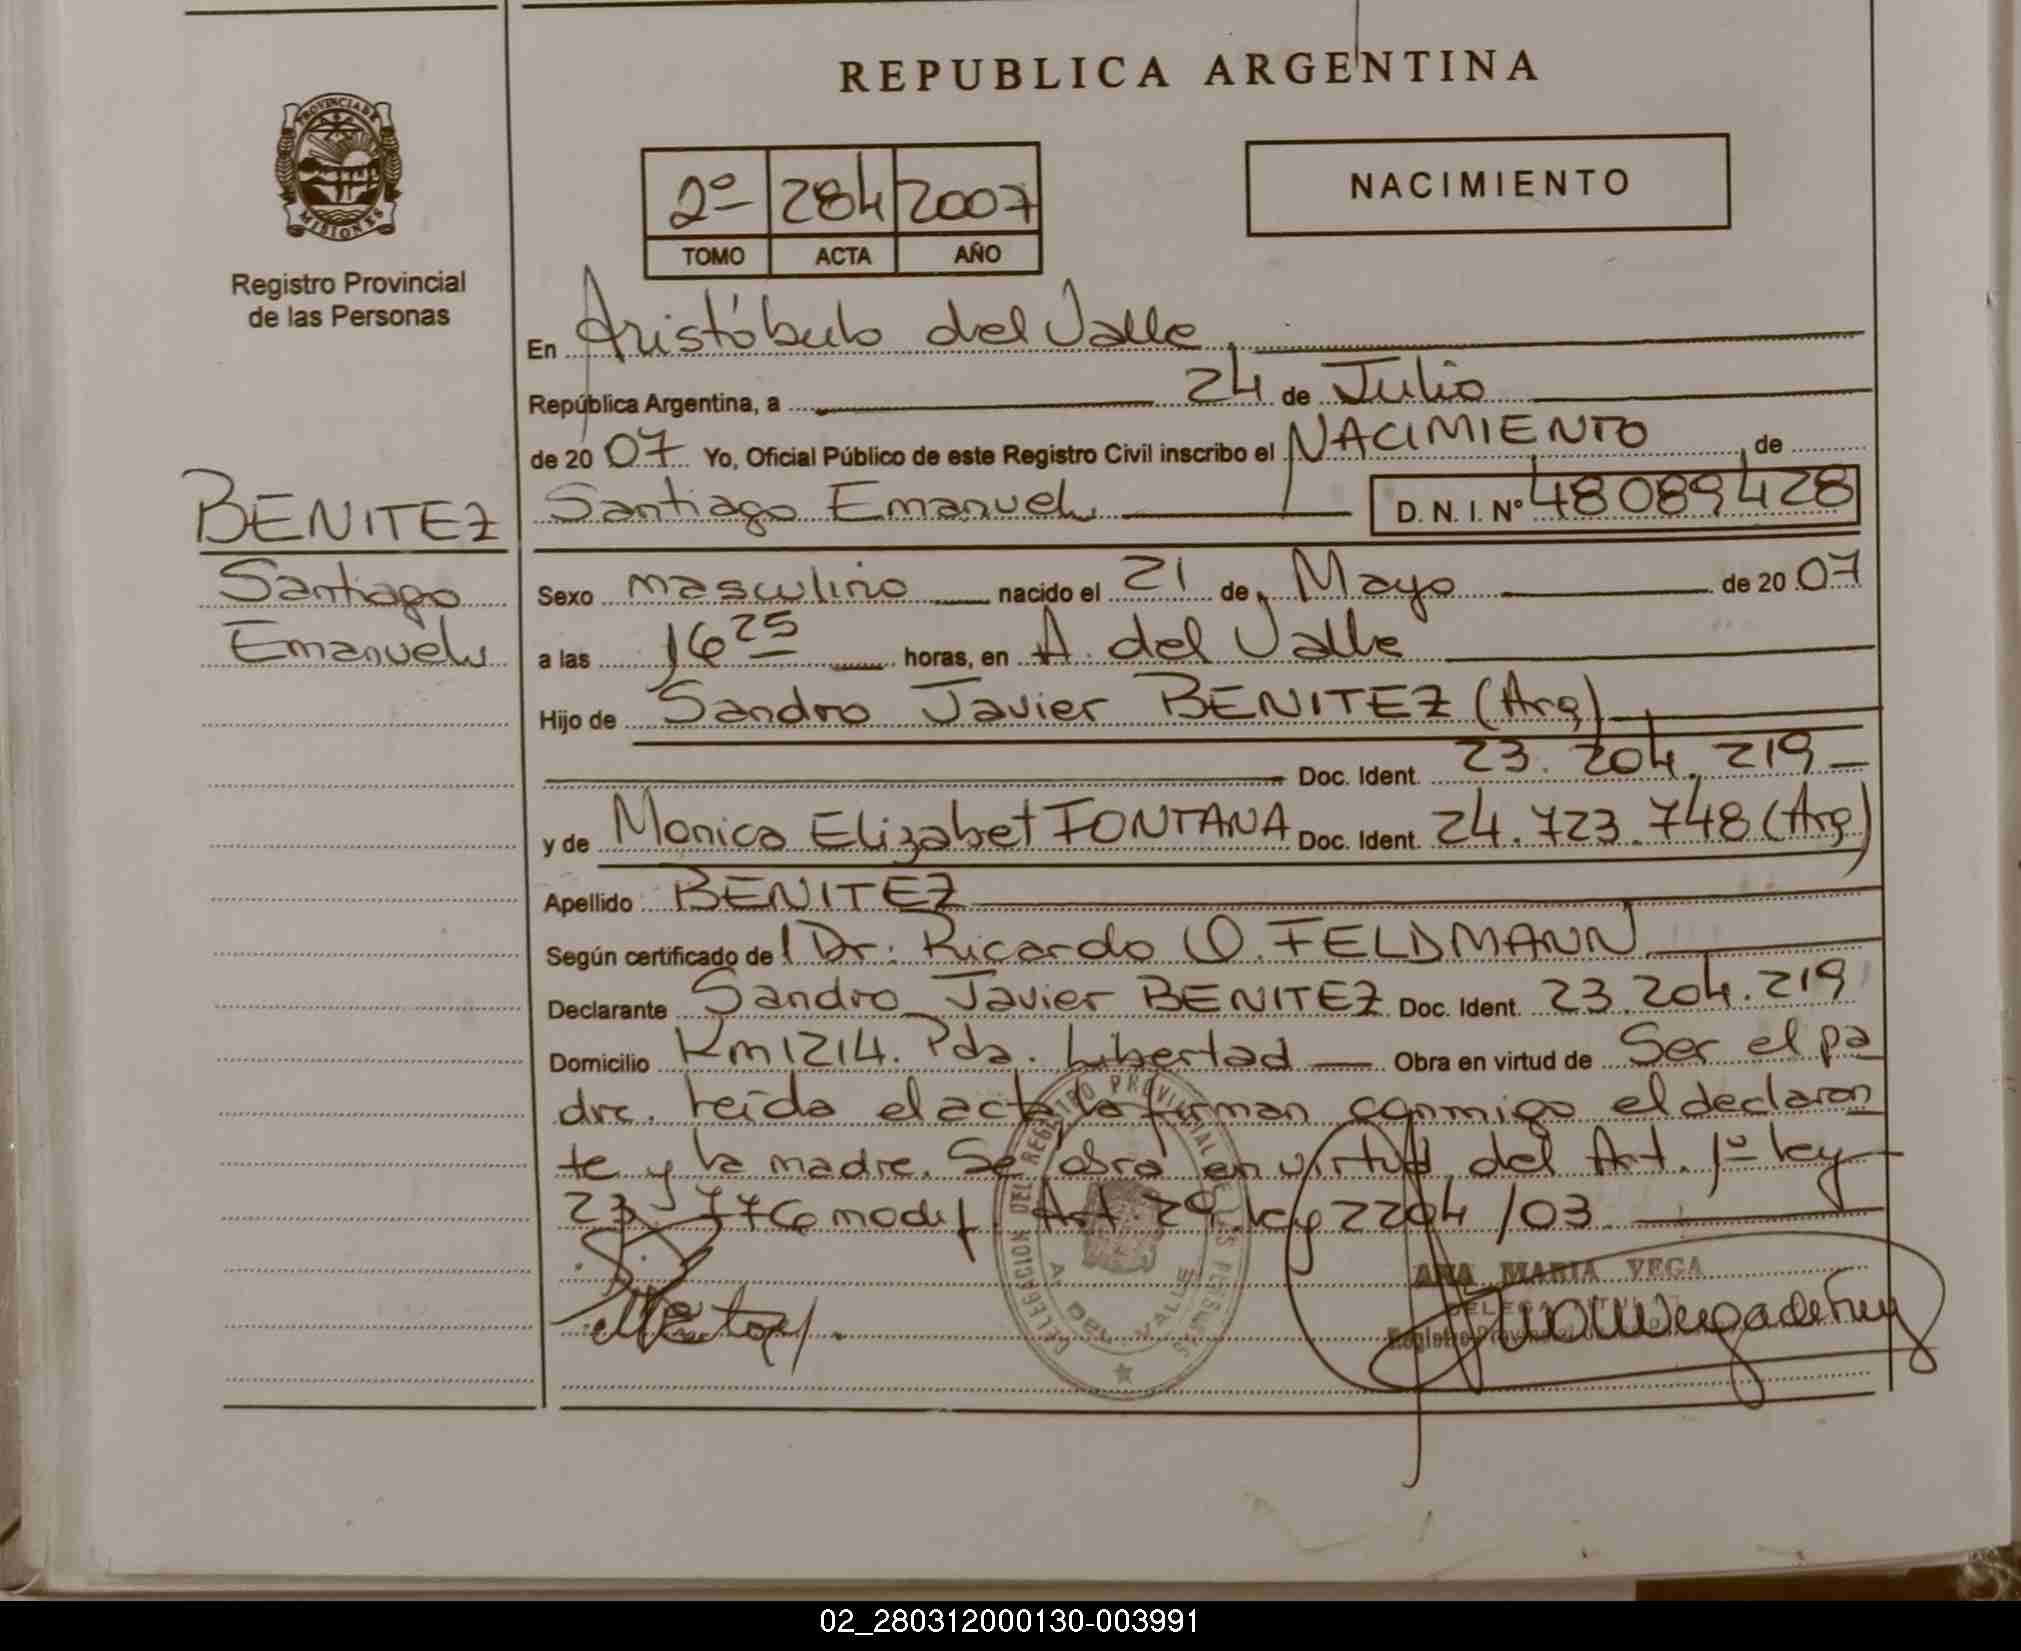 REPUBLICA ARGENTINA
PROVINCIA DE
MISIONES
Registro Provincial
de las Personas
2º 284 2007
TOMO ACTA AÑO
NACIMIENTO
En Aristóbulo del Valle
República Argentina, a 24 de Julio
de 2007 Yo, Oficial Público de este Registro Civil inscribo el NACIMIENTO de
BENITEZ
Santiago Emanuel D.N.I. Nº 48089428
Santiago
Emanuel
Sexo masculino nacido el 21 de Mayo de 2007
a las 16 25 horas, en A. del Valle
Hijo de Sandro Javier BENITEZ (Arg)
Doc. Ident. 23.204.219
y de Monica Elizabet FONTANA Doc. Ident. 24.723.748 (Arg)
Apellido BENITEZ
Según certificado de Dr. Ricardo O. FELDMANN
Declarante Sandro Javier BENITEZ Doc. Ident. 23.204.219
Domicilio Km 1214. Pda. Libertad Obra en virtud de Ser el pa
dre. Leída el acta la firman conmigo el declaran
te y la madre. Se obra en virtud del Art. 1º Ley
23.776 modif. Art. 29 Ley 2204/03
DELEGACION DEL REGISTRO PROVINCIAL DE LAS PERSONAS
A. DEL VALLE
ANA MARIA VEGA
02_280312000130-003991